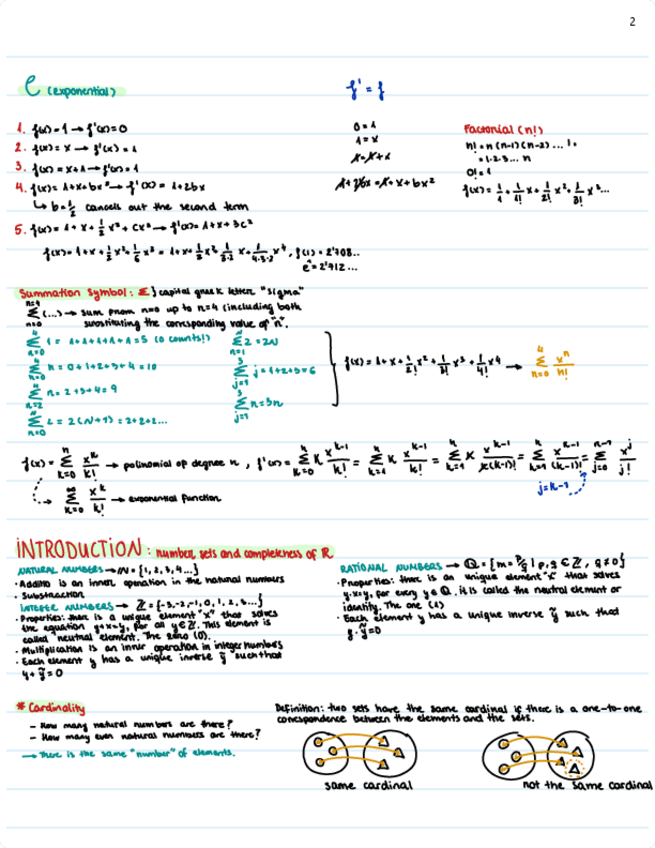 2
e (exponential)
f' = f
1. f(x)=1 → f'(x)=0
2. f(x)= x → f'(x)=1
3. f(x)= x+1 → f'(x)=1
4. f(x)= 1+x+bx² → f'(x)= 1+2bx
↳ b=1/2 cancels out the second term
5. f(x)= 1+x+1/2 x²+cx³ → f'(x)= 1+x+3c²
0=1
1=x
x=x+1
Factorial (n!)
n! = n(n-1)(n-2)... 1.
= 1·2·3... n
0! = 1
f(x)= 1/1 + 1/1! x + 1/2! x² + 1/3! x³...
Summation Symbol: Σ } capital greek letter "sigma"
Σ(...) → sum from n=0 up to n=4 (including both
substituting the corresponding value of "n".
Σ 1 = 1+1+1+1+1=5 (0 counts!)
Σ n = 0+1+2+3+4=10
Σ n = 2+3+4=9
Σ 2 = 2(N+1) = 2+2+2...
Σ 2 = 2N
Σ j = 1+2+3=6
Σ n=3n
f(x)= 1+x+1/2! x²+1/3! x³+1/4! x⁴ → Σ xⁿ/n!
→ polinomial of degree n
→ exponential function
j=k-1
INTRODUCTION: number, sets and completeness of R
NATURAL NUMBERS → N = {1, 2, 3, 4...}
· Additio is an inner operation in the natural numbers
· Substraction
INTEGER NUMBERS → Z = {-3,-2,-1, 0, 1, 2, 3,...}
· Properties: there is a unique element "x" that solves
the equation y+x=y, for all y∈Z. This element is
called neutral element. The zero (0).
· Multiplication is an inner operation in integer numbers
· Each element y has a unique inverse ỹ such that
y+ỹ=0
RATIONAL NUMBERS → Q = {m = p/q | p, q ∈ Z, q ≠ 0}
· Properties: there is an unique element "x" that solves
y·x=y, for every y ∈ Q. it is called the neutral element or
identity. The one (1)
· Each element y has a unique inverse ỹ such that
y·ỹ=0
* Cardinality
- How many natural numbers are there?
- How many even natural numbers are there?
→ There is the same "number" of elements.
Definition: two sets have the same cardinal if there is a one-to-one
correspondence between the elements and the sets.
same cardinal
not the same cardinal